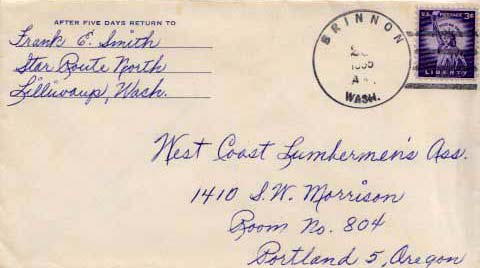 AFTER FIVE DAYS RETURN TO
Frank E. Smith
Star Route North
Lilliwaup, Wash.
BRINNON
1955
A
WASH.
U.S. POSTAGE 3¢
LIBERTY
West Coast Lumbermen's Ass.
1410 S.W. Morrison
Room No. 804
Portland 5, Oregon